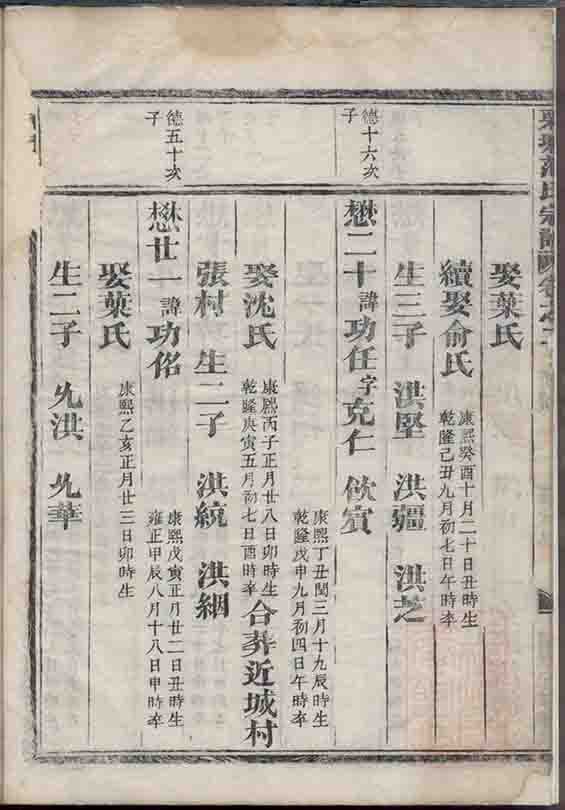 宗譜
娶葉氏
續娶俞氏 康熙癸酉十月二十日丑時生
乾隆己丑九月初七日午時卒
生三子 洪堅 洪疆 洪芝
德十六次
子
懋二十諱功任字克仁 飲賓
康熙丁丑閏三月十九辰時生
乾隆戊申九月初四日午時卒
娶沈氏 康熙丙子正月廿八日卯時生
乾隆庚寅五月初七日酉時卒 合葬近城村
張村 生二子 洪統 洪絪
德五十次
子
懋廿一諱功佲
康熙戊寅正月廿二日丑時生
雍正甲辰八月十八日申時卒
娶葉氏 康熙乙亥正月廿三日卯時生
生二子 允洪 允華